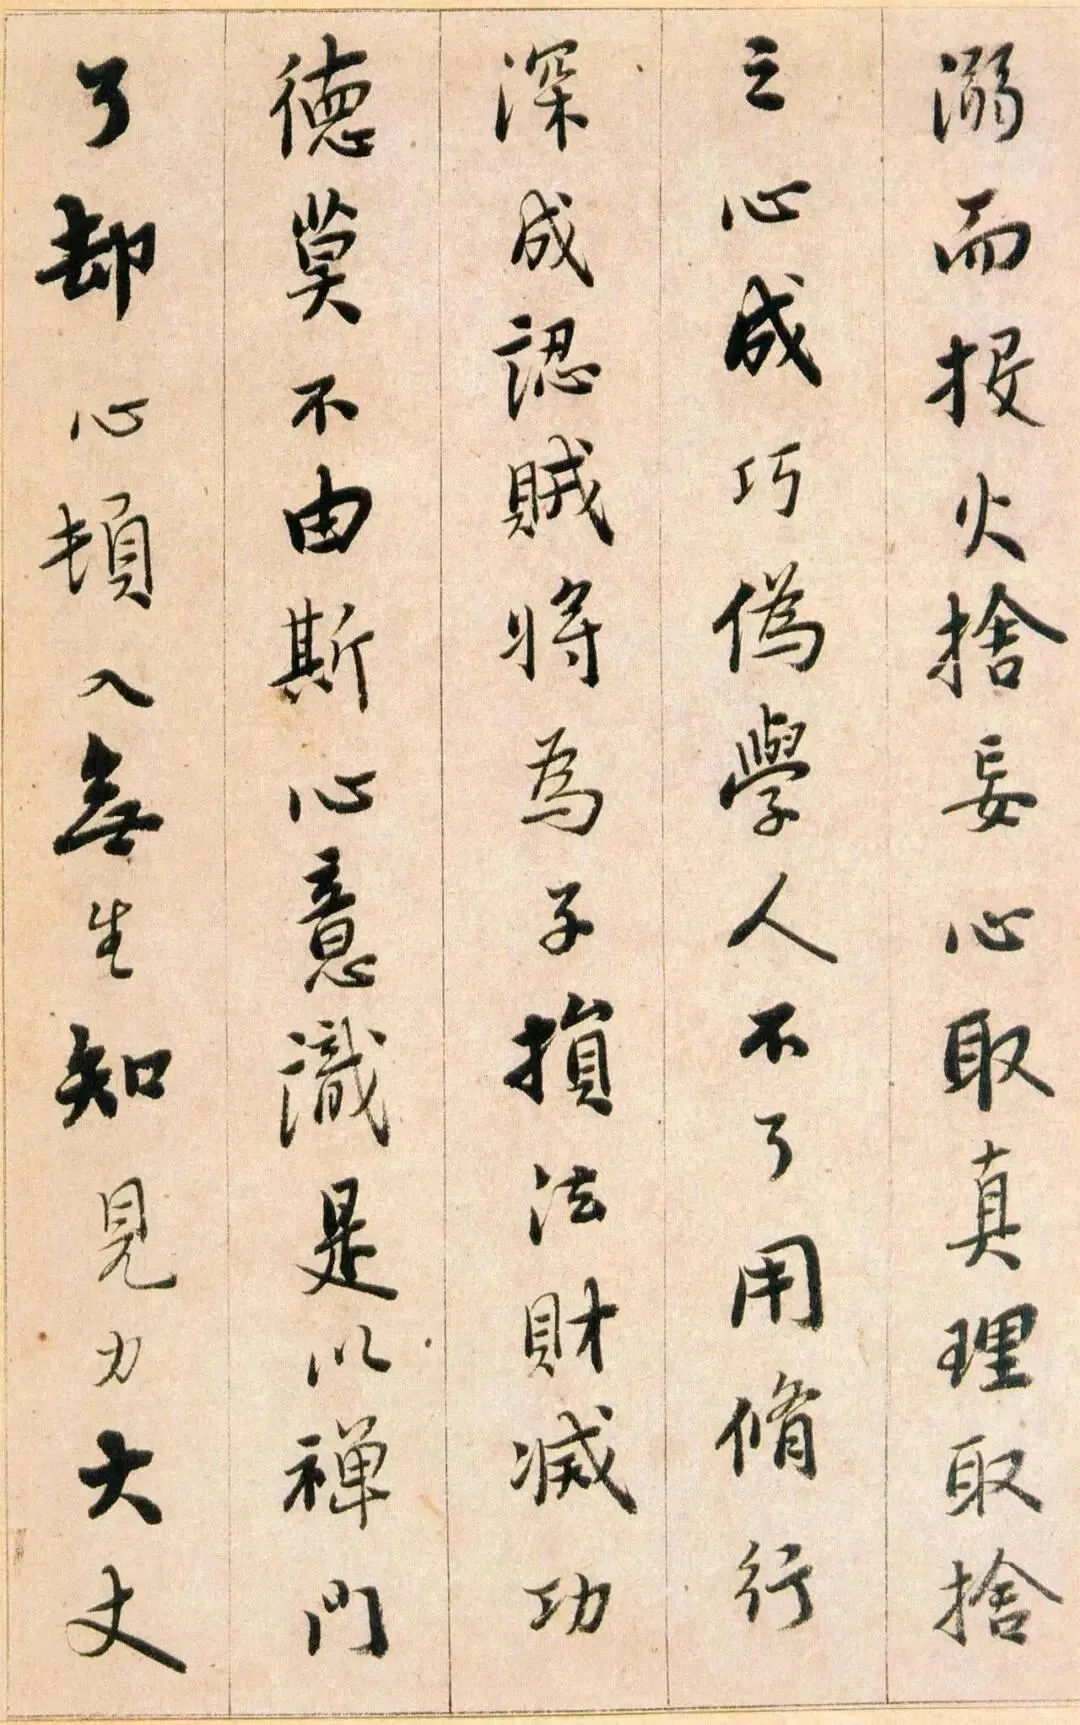 溺而投火捨妄心取真理取捨
之心成巧偽學人不了用脩行
深成認賊将為子損法財減功
徳莫不由斯心意識是以禅門
了却心頓入無生知見力大丈